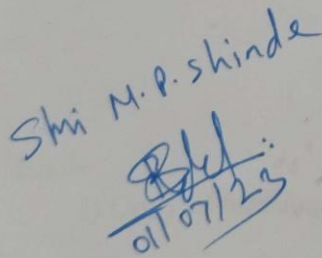 Shri M.P. Shinde
01/07/23